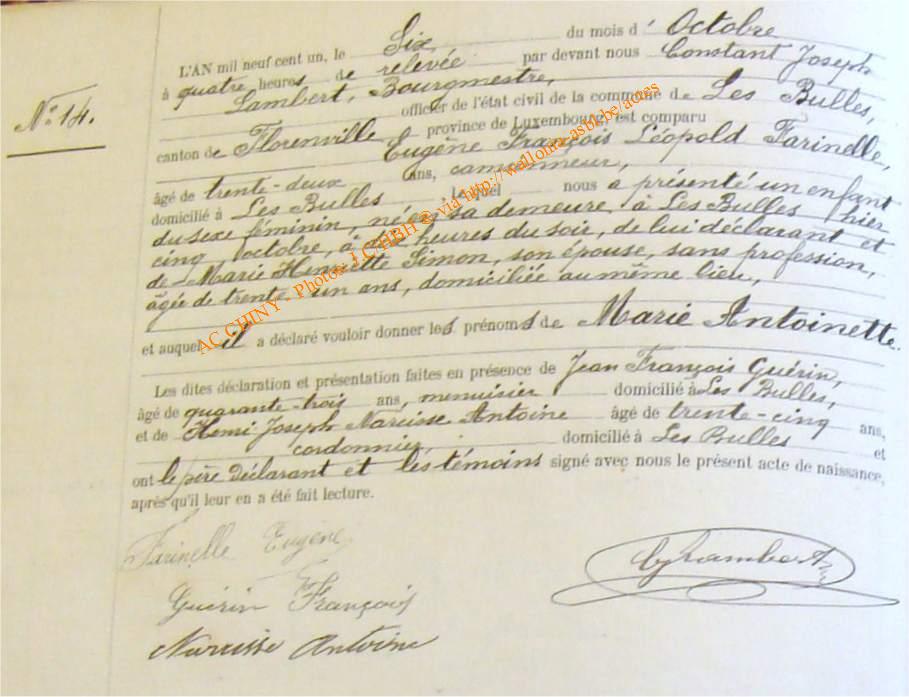 N° 14.
L'AN mil neuf cent un, le Six du mois d' Octobre
à quatre heures de relevée par devant nous Constant Joseph
Lambert, Bourgmestre,
officier de l'état civil de la commune de Les Bulles,
canton de Florenville province de Luxembourg, est comparu
Eugène François Léopold Farinelle,
âgé de trente-deux ans,
domicilié à Les Bulles lequel nous a présenté un enfant
du sexe féminin, né en sa demeure, à Les Bulles hier
cinq octobre, à heures du soir, de lui déclarant et
de Marie Henriette Simon, son épouse, sans profession,
âgée de trente un ans, domiciliée au même lieu,
et auquel il a déclaré vouloir donner les prénoms de Marie Antoinette.
Les dites déclaration et présentation faites en présence de Jean François Guérin,
âgé de quarante-trois ans, menuisier domicilié à Les Bulles,
et de Henri Joseph Narcisse Antoine âgé de trente-cinq ans,
cordonnier, domicilié à Les Bulles et
ont le père déclarant et les témoins signé avec nous le présent acte de naissance,
après qu'il leur en a été fait lecture.
Farinelle Eugène
Guérin François
Narcisse Antoine
AC CHINY - Photos J.C.HBH © via http://wallonia-asbl.be/actes